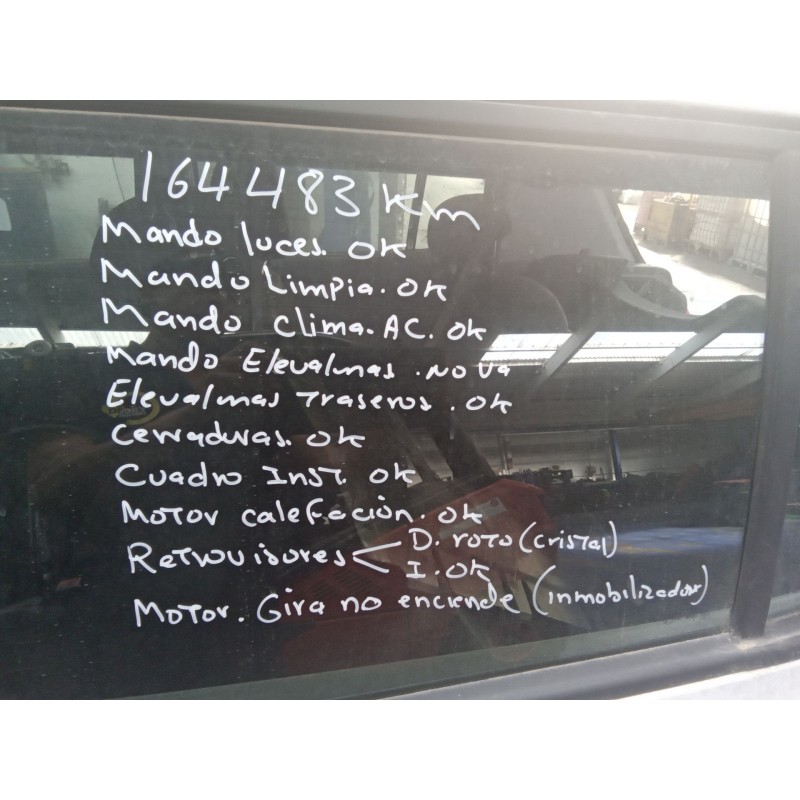 164483 km
Mando luces. OK
Mando Limpia. OK
Mando clima. AC. OK
Mando Elevalunas. NO VA
Elevalunas Traseros. OK
Cerraduras. OK
Cuadro Inst. OK
Motor calefación. OK
Retrovisores < D. roto (cristal)
I. OK
Motor. Gira no enciende (inmobilizador)